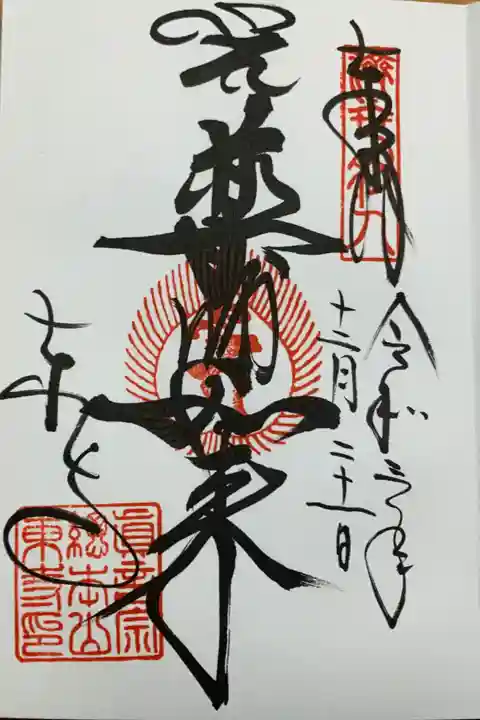 奉拝
令和三年
十二月二十一日
薬師如来
東寺
眞言宗
總本山
東寺印